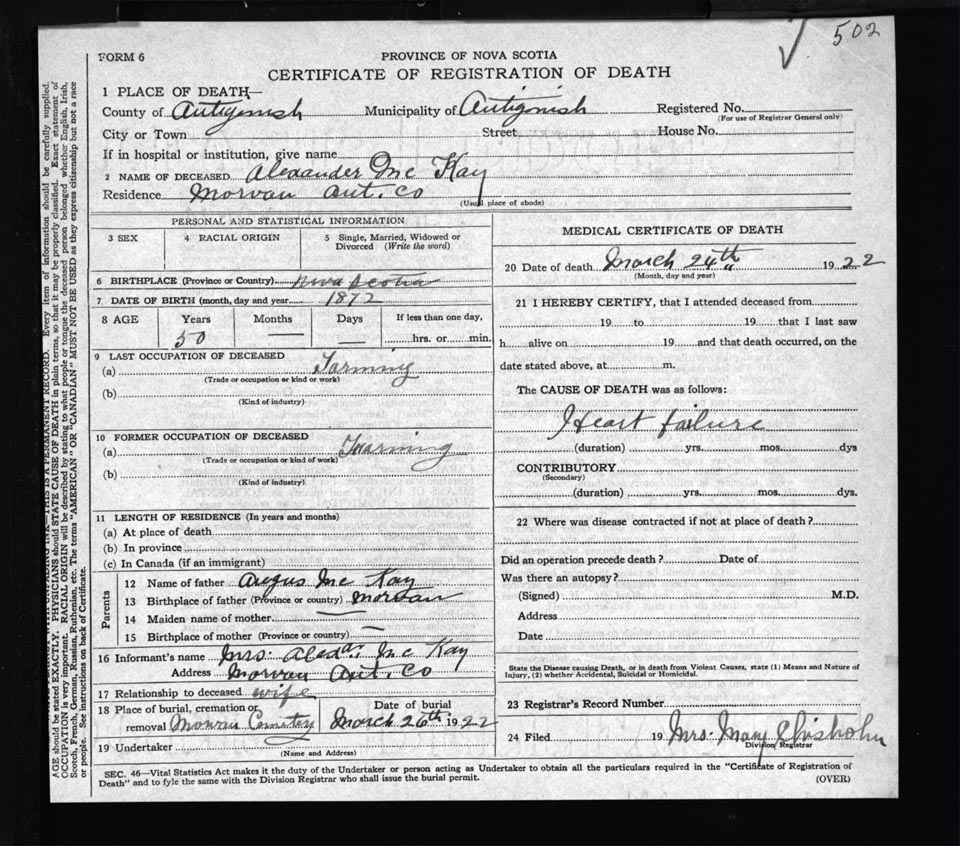 502
FORM 6
PROVINCE OF NOVA SCOTIA
CERTIFICATE OF REGISTRATION OF DEATH
1 PLACE OF DEATH—
County of Antigonish Municipality of Antigonish Registered No.
(For use of Registrar General only)
City or Town Street House No.
If in hospital or institution, give name
2 NAME OF DECEASED Alexander Mc Kay
Residence Morvan Ant. Co
(Usual place of abode)
PERSONAL AND STATISTICAL INFORMATION
3 SEX 4 RACIAL ORIGIN 5 Single, Married, Widowed or Divorced (Write the word)
6 BIRTHPLACE (Province or Country) Nova Scotia
7 DATE OF BIRTH (month, day and year) 1872
8 AGE Years Months Days If less than one day,
50 — — hrs. or min.
9 LAST OCCUPATION OF DECEASED
(a) Farming
(Trade or occupation or kind or work)
(b)
(Kind of industry)
10 FORMER OCCUPATION OF DECEASED
(a) Farming
(Trade or occupation or kind of work)
(b)
(Kind of industry)
11 LENGTH OF RESIDENCE (In years and months)
(a) At place of death
(b) In province
(c) In Canada (if an immigrant)
Parents
12 Name of father Angus Mc Kay
13 Birthplace of father (Province or country) Morvan
14 Maiden name of mother —
15 Birthplace of mother (Province or country) —
16 Informant's name Mrs. Alexdr. Mc Kay
Address Morvan Ant. Co
17 Relationship to deceased wife
18 Place of burial, cremation or removal Morvan Cemetry Date of burial March 26th 1922
19 Undertaker
(Name and Address)
MEDICAL CERTIFICATE OF DEATH
20 Date of death March 24th 1922
(Month, day and year)
21 I HEREBY CERTIFY, that I attended deceased from
19 to 19 that I last saw
h alive on 19 and that death occurred, on the
date stated above, at m.
The CAUSE OF DEATH was as follows:
Heart failure
(duration) yrs. mos. dys
CONTRIBUTORY
(Secondary)
(duration) yrs. mos. dys.
22 Where was disease contracted if not at place of death?
Did an operation precede death? Date of
Was there an autopsy?
(Signed) M.D.
Address
Date
State the Disease causing Death, or in death from Violent Causes, state (1) Means and Nature of
Injury, (2) whether Accidental, Suicidal or Homicidal.
23 Registrar's Record Number
24 Filed 19 Mrs. Mary Chisholm
Division Registrar
SEC. 46—Vital Statistics Act makes it the duty of the Undertaker or person acting as Undertaker to obtain all the particulars required in the "Certificate of Registration of
Death" and to fyle the same with the Division Registrar who shall issue the burial permit. (OVER)
THIS IS A PERMANENT RECORD. Every item of information should be carefully supplied.
AGE should be stated EXACTLY. PHYSICIANS should STATE CAUSE OF DEATH in plain terms, so that it may be properly classified. Exact statement of
OCCUPATION is very important. RACIAL ORIGIN will be described by stating to what people or tongue the deceased person belonged whether English, Irish,
Scotch, French, German, Russian, Ruthenian, etc. The terms "AMERICAN" OR "CANADIAN" MUST NOT BE USED as they express citizenship but not a race
or people. See instructions on back of Certificate.